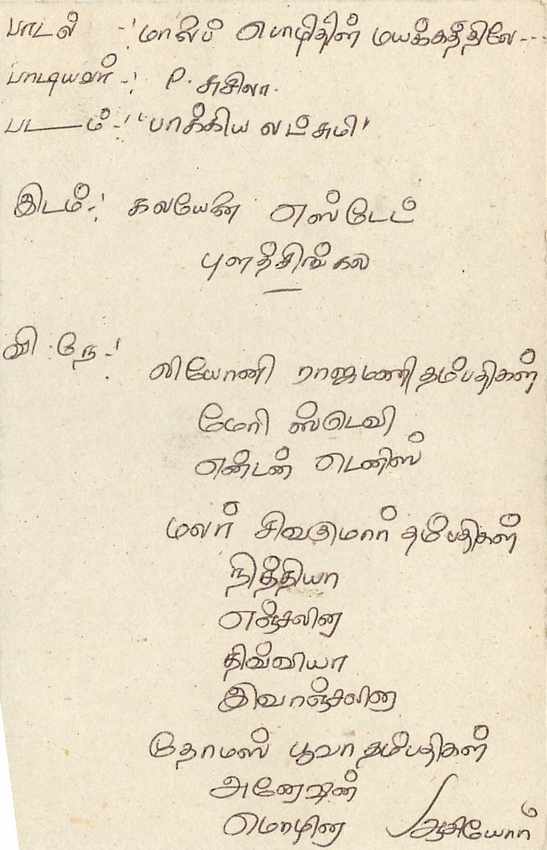 பாடல் -: மாலைப் பொழிதின் மயக்கத்திலே---
பாடியவர் -: P. சுசிலா.
படம் -: "பாக்கிய லட்சுமி"
இடம் -: கலயேன எஸ்டேட்
புளத்சிங்கல
வி. நே -:
லியோனி ராஜமணி தம்பதிகள்
மேரி ஸ்டெவி
என்டன் டெனிஸ்
மலர் சிவகுமார் தம்பதிகள்
நித்தியா
எஞ்சலின
திவ்வியா
இவாஞ்சலின
தோமஸ் பூவா தம்பதிகள்
அனேஷன்
மொழின ஆகியோர்